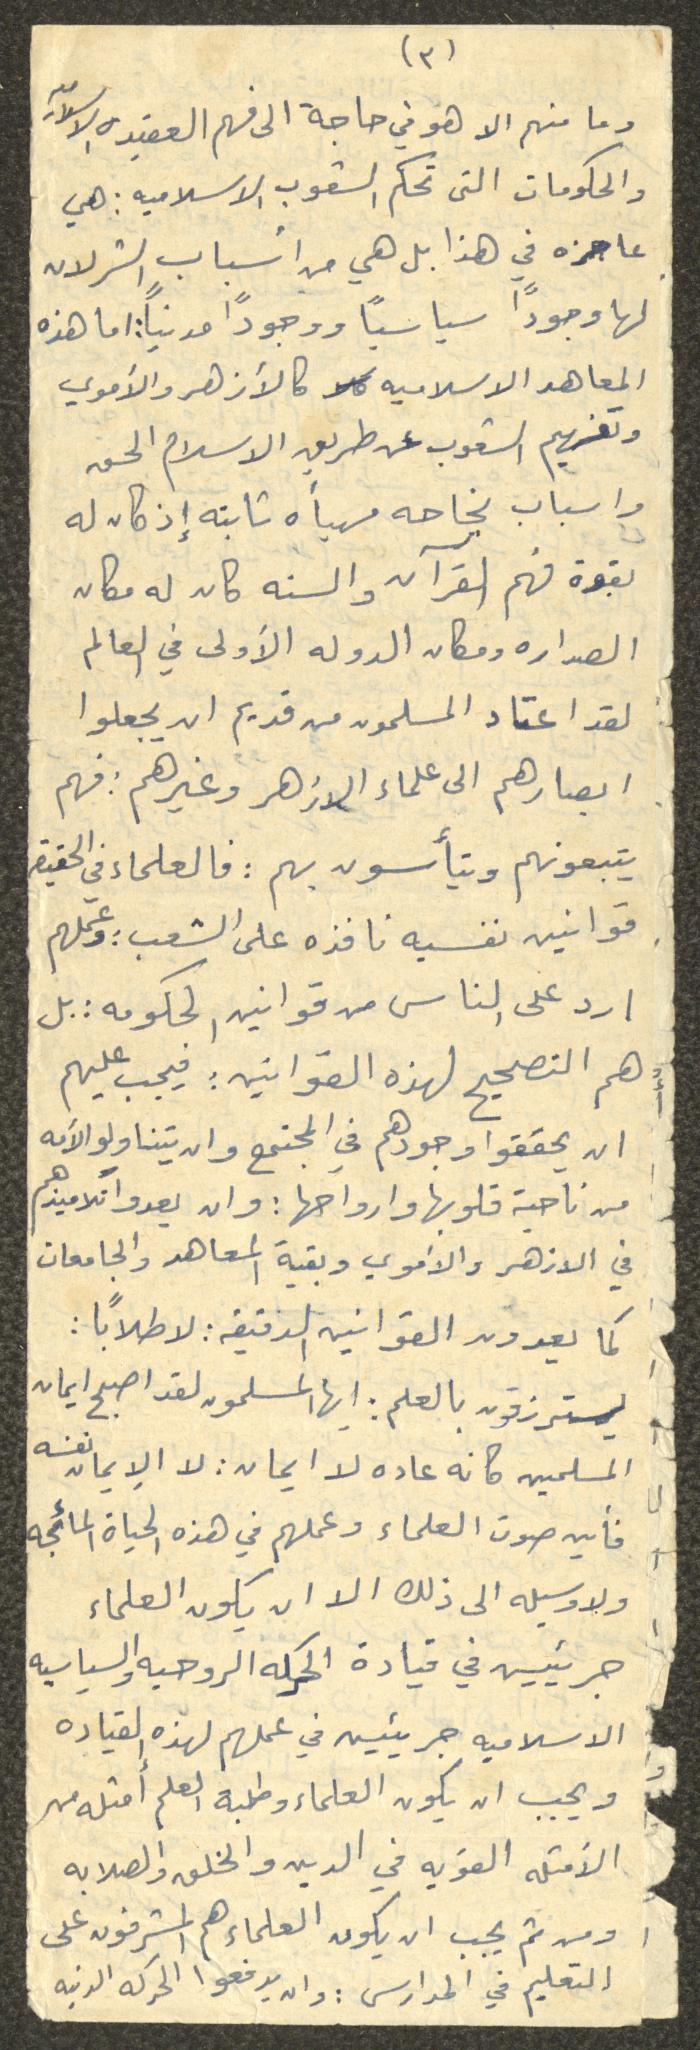 (٣)
وما منهم الا هو في حاجة الى فهم العقيده الاسلاميه
والحكومات التى تحكم الشعوب الاسلاميه : هي
عاجزه في هذا بل هي من أسباب الشر لان
لها وجودًا سياسيًا ووجودًا مدنيًا : اما هذه
المعاهد الاسلاميه كالأزهر والأموي
وتفهيم الشعوب عن طريق الاسلام الحق
واسباب نجاحه مهيأه ثابته إذ كان له
بقوة فهم القرآن والسنه كان له مكان
الصداره ومكان الدوله الأولى في العالم
لقد اعتاد المسلمون من قديم ان يجعلوا
ابصارهم الى علماء الازهر وغيرهم : فهم
يتبعونهم ويتأسون بهم : فالعلماء في الحقيقه
قوانين نفسيه نافذه على الشعب : وعملهم
ارد على الناس من قوانين الحكومه : بل
هم التصحيح لهذه القوانين : فيجب عليهم
ان يحققوا وجودهم في المجتمع وان يتناولوا الأمه
من ناحية قلوبها وارواحها : وان يعدوا تلاميذهم
في الازهر والأموي وبقية المعاهد والجامعات
كما يعدون القوانين الدقيقه : لا طلابًا :
يسترزقون بالعلم : ايها المسلمون لقد اصبح ايمان
المسلمين كانه عاده لا ايمان : لا الإيمان نفسه
فأين صوت العلماء وعملهم في هذه الحياة المائجه
ولا وسيله الى ذلك الا ان يكون العلماء
جريئين في قيادة الحركه الروحيه والسياسيه
الاسلاميه جريئين في عملهم لهذه القياده
ويجب ان يكون العلماء وطلبة العلم أمثله من
الأمثله القويه في الدين والخلق والصلابه
ومن ثم يجب ان يكون العلماء هم المشرفون على
التعليم في المدارس : وان يدفعوا الحركه الدينيه